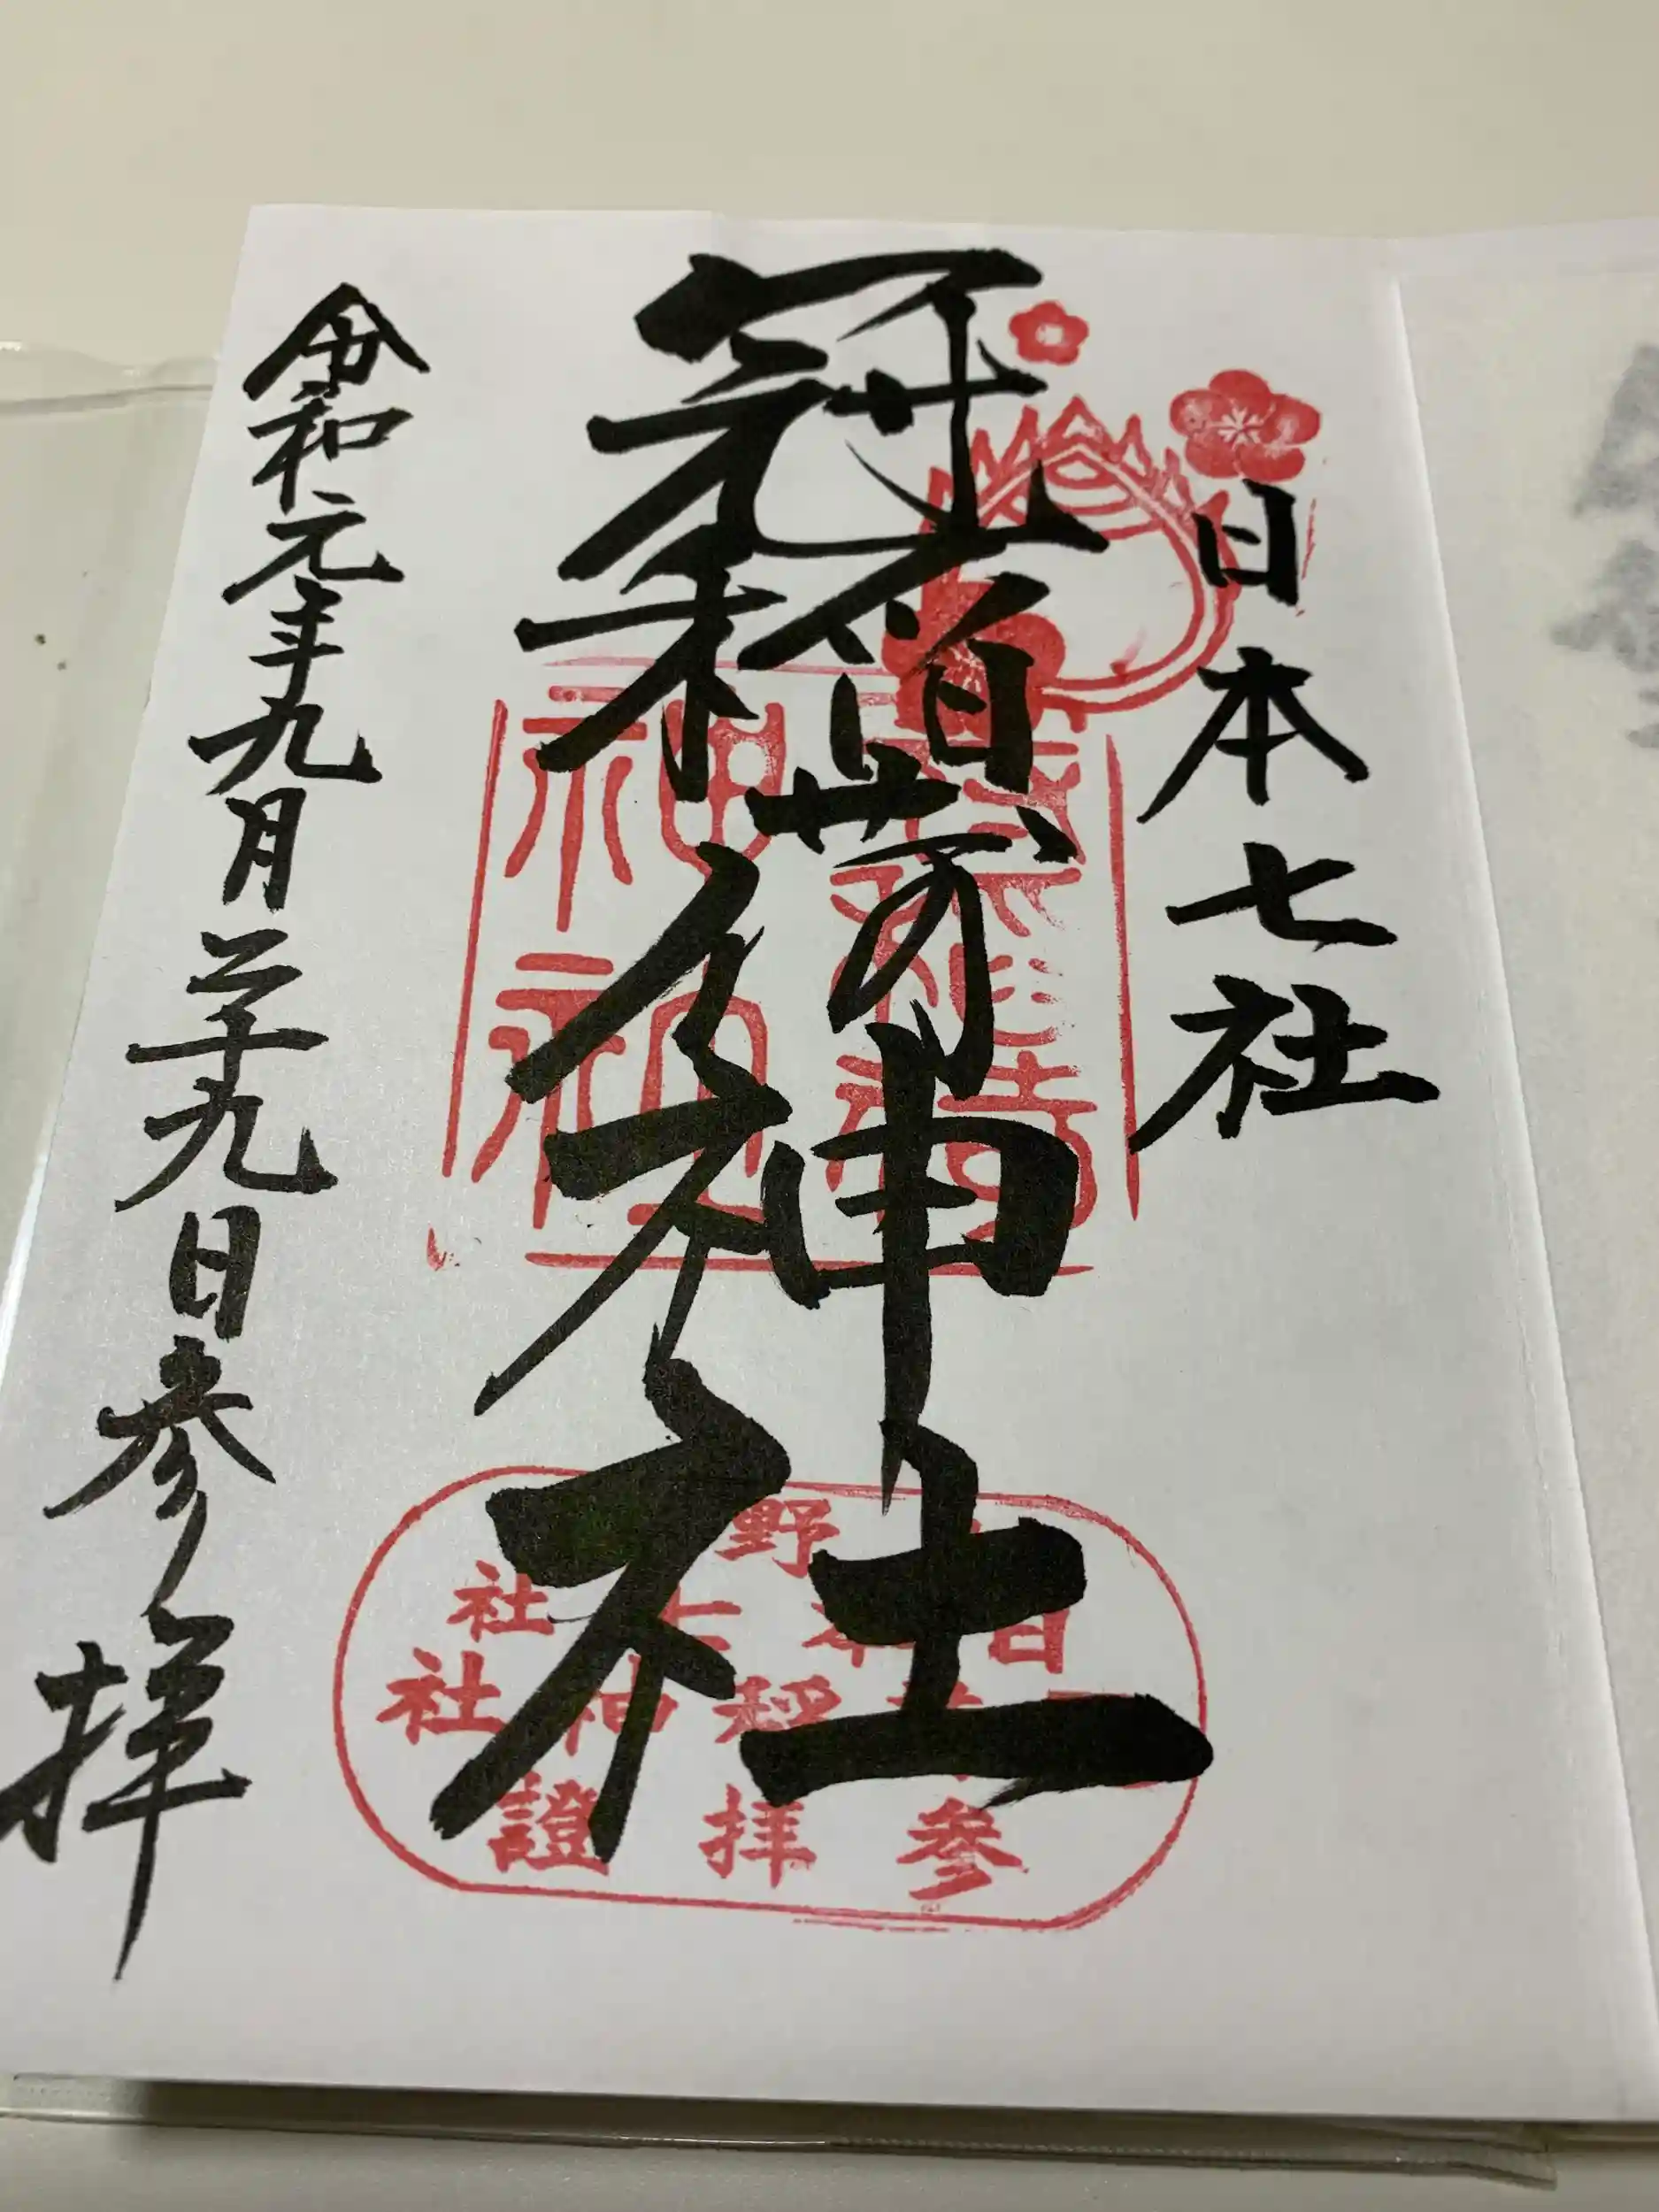 日本七社
冠稲荷神社
令和元年九月二十九日参拝
神社
野
日本七社
稲神社
参拝證